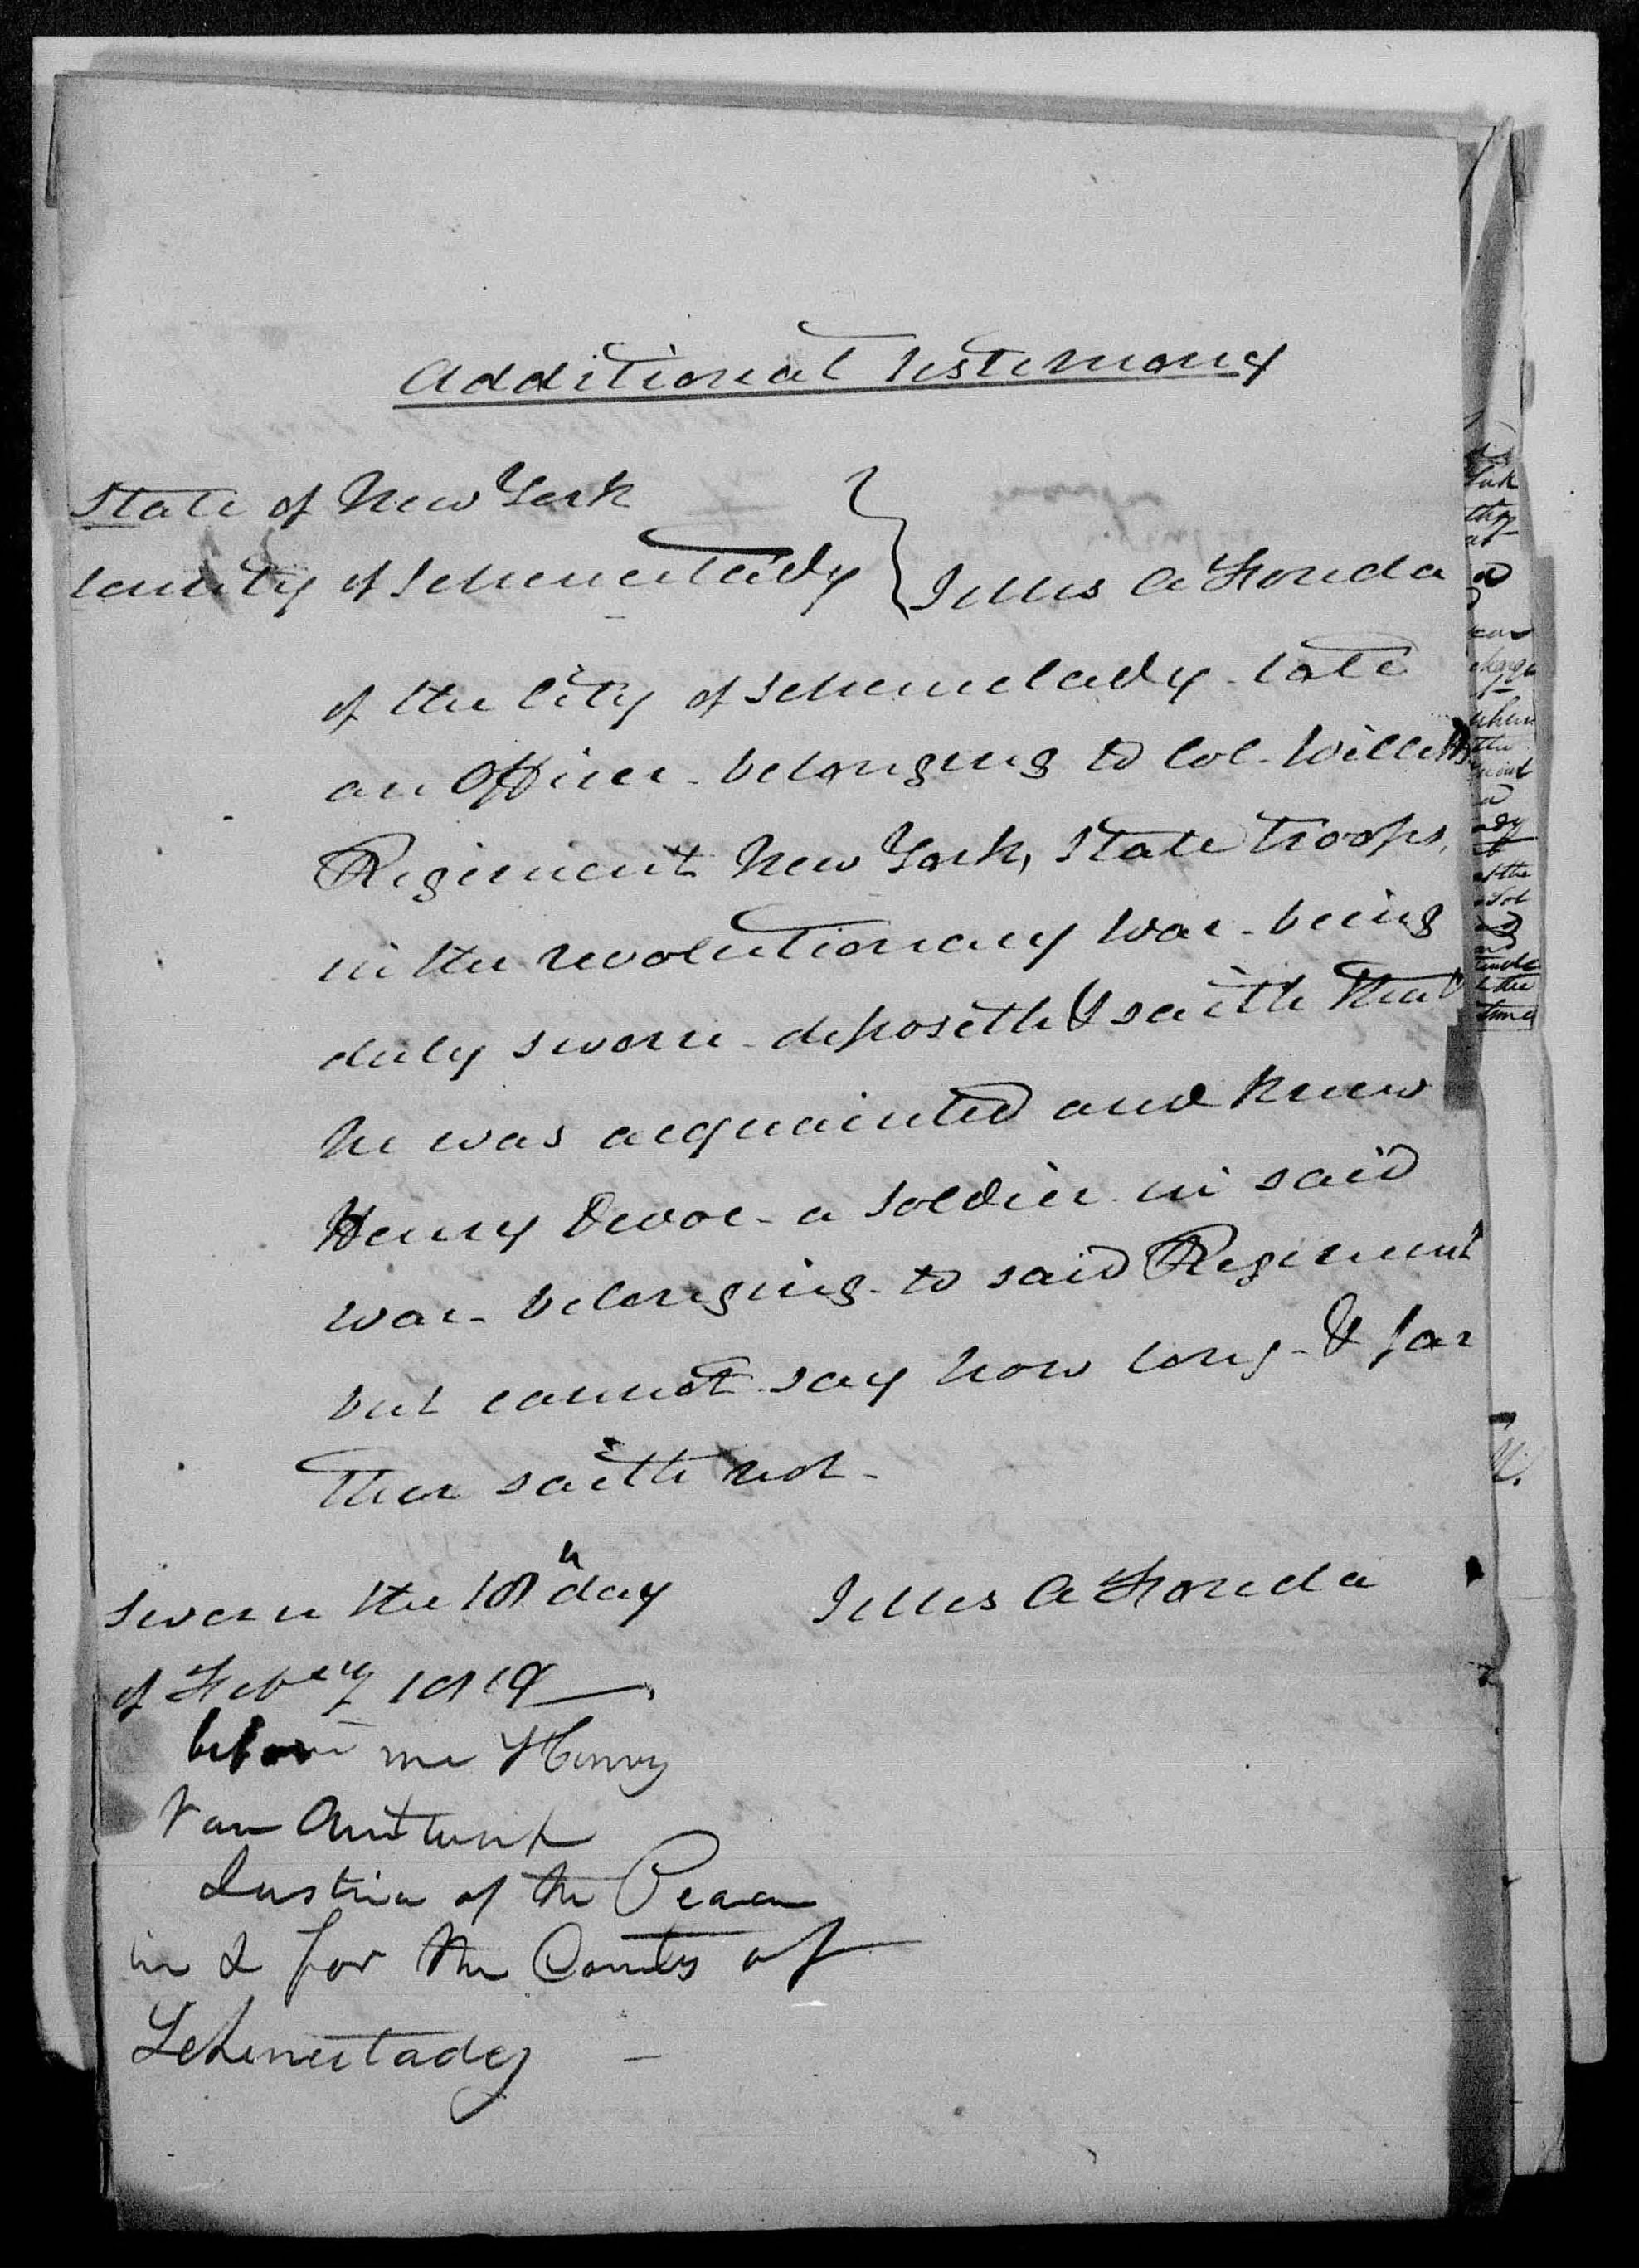 Additional Testimony
State of New York
County of Schenectady } Jelles A Fonda
of the City of Schenectady late
an Officer belonging to Col. Willetts
Regiment New York, State Troops,
in the revolutionary war - being
duly sworn - deposeth & saith that
he was acquainted and knew
Henry Devoe - a soldier in said
war - belonging - to said Regiment
but cannot say how long - & far
ther saith not -
Sworn the 18th day
Jelles A Fonda
of Febry 1819
before me Henry
Van Antwerp
Justice of the Peace
in & for the County of
Schenectady -